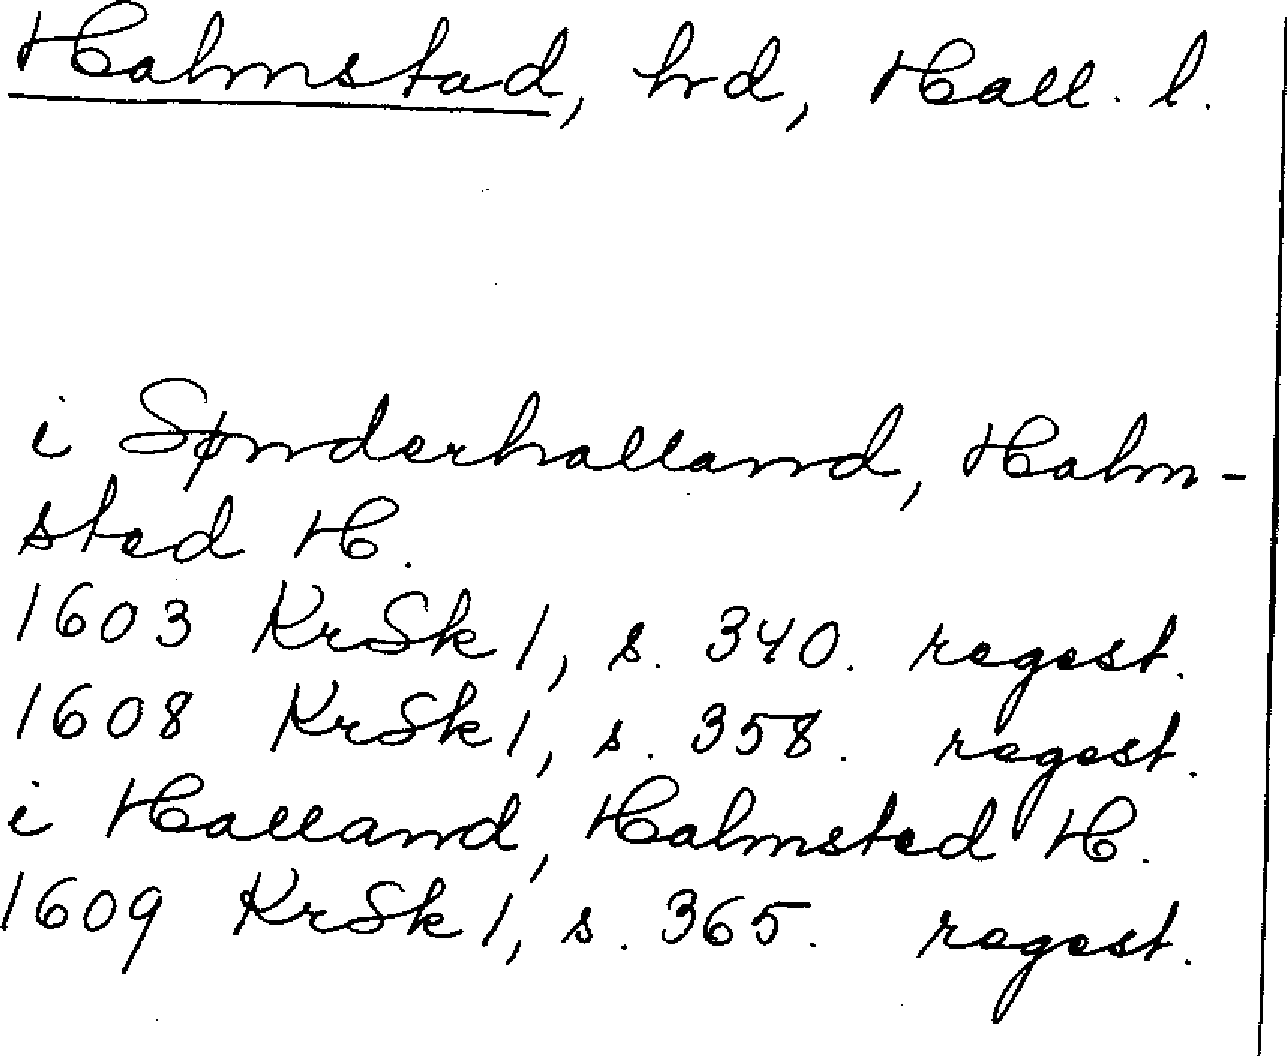 Halmstad, hrd, Hall. l.
i Sønderhalland, Halm-
sted H.
1603 KrSk 1, s. 340. regest.
1608 KrSk 1, s. 358. regest.
i Halland, Halmsted H.
1609 KrSk 1, s. 365. regest.